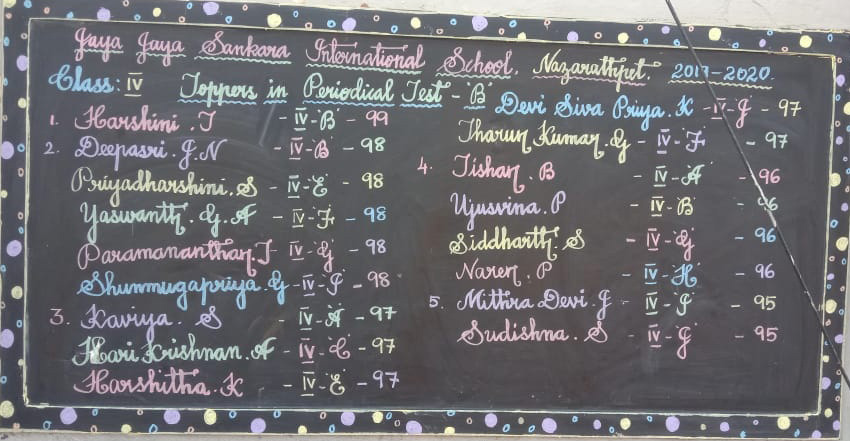 Jaya Jaya Sankara International School, Nazarathpet. 2019-2020.
Class: IV Toppers in Periodical Test - 'B'
1. Harshini .T - IV-'B' - 99
2. Deepasri .J.N - IV-'B' - 98
Priyadharshini. S - IV-'E' - 98
Yaswanth. G. A - IV-'F' - 98
Paramananthan. T IV-'G' - 98
Shunmugapriya. G - IV-'I' - 98
3. Kaviya. S IV-'A' - 97
Hari Krishnan. A - IV-'C' - 97
Harshitha. K - IV-'E' - 97
Devi Siva Priya. K - IV-'J' - 97
Tharun Kumar. G - IV-'F' - 97
4. Tishan. B - IV-'A' - 96
Ujusvina. P - IV-'B' - 96
Siddharth. S - IV-'G' - 96
Naren. P - IV-'H' - 96
5. Mithra Devi. J - IV-'I' - 95
Sudishna. S - IV-'J' - 95